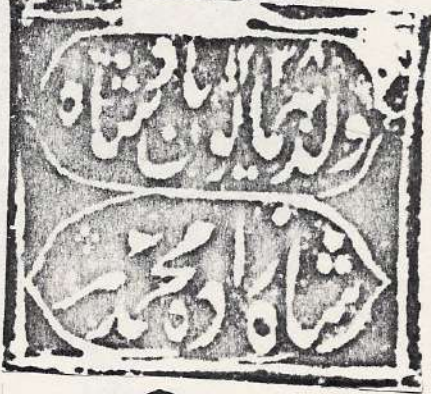 ولد همایون پادشاه ۱۲۳۸
شاهزاده محمد